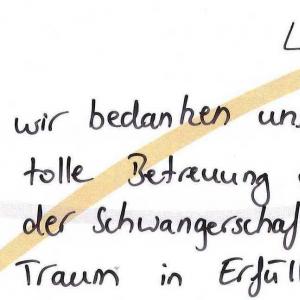 L
wir bedanken un
tolle Betreuung
der Schwangerschaf
Traum in Erfüll